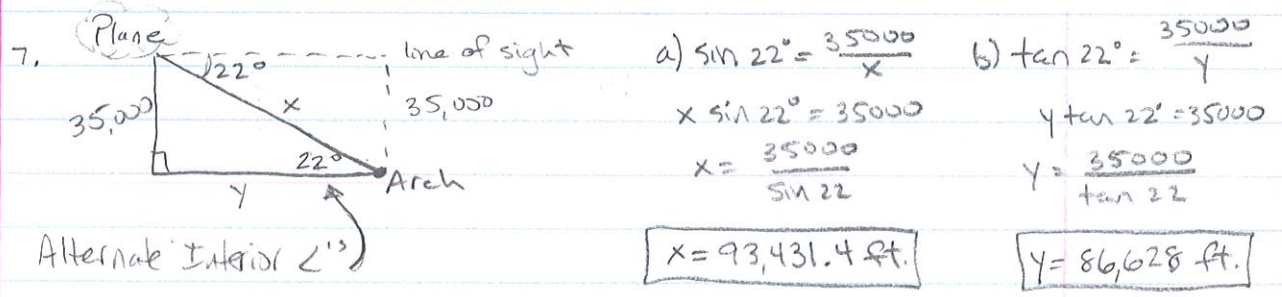 7.
Plane
line of sight
22°
35,000
x
35,000
22°
Arch
y
Alternate Interior <'s
a) sin 22° = 35000/x
x sin 22° = 35000
x = 35000/sin 22
x = 93,431.4 ft.
b) tan 22° = 35000/y
y tan 22° = 35000
y = 35000/tan 22
y = 86,628 ft.